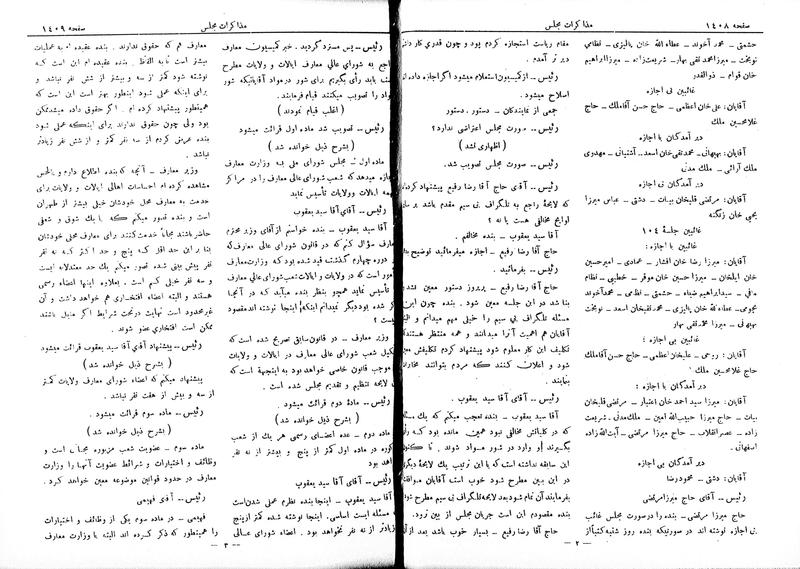 صفحه ۱۴۰۸
مذاکرات مجلس
حشمتی ـ محمد آخوند ـ عطاءالله خان پالیزی ـ نظامی
نوبخت ـ میرزا محمد تقی بهار ـ شریعت زاده ـ میرزا ابراهیم
خان قوام ـ ذوالقدر
غائبین بی اجازه
آقایان: علی خان اعظمی ـ حاج حسن آقا ملک ـ حاج
غلامحسین ملک
دیر آمدگان با اجازه
آقایان: بهبهانی ـ محمد تقی خان اسعد ـ آشتیانی ـ مهدوی
ملک آرائی ـ ملک مدنی
دیر آمدگان بی اجازه
آقایان: مرتضی قلیخان بیات ـ دشتی ـ عباس میرزا
یحیی خان زنگنه
غائبین جلسه ۱۰۴
غائبین با اجازه:
آقایان: میرزا رضا خان افشار ـ عمادی ـ امیرحسین
خان ایلخان ـ میرزا حسین خان موقر ـ خطیبی ـ نظام
مافی ـ سید ابراهیم ضیاء ـ حشمتی ـ نظامی ـ محمد آخوند
نجومی ـ عطاءالله خان پالیزی ـ محمد تقیخان اسعد ـ نوبخت
بهبهانی ـ میرزا محمد تقی بهار
غائبین بی اجازه:
آقایان: روحی ـ علیخان اعظمی ـ حاج حسن آقا ملک
حاج غلامحسین ملک
دیر آمدگان با اجازه:
آقایان: میرزا سید احمد خان اعتبار ـ مرتضی قلیخان
بیات ـ حاج میرزا حبیب الله امین ـ ملک مدنی ـ شریعت
زاده ـ عصر انقلاب ـ حاج میرزا مرتضی ـ آیت الله زاده
اصفهانی.
دیر آمدگان بی اجازه
آقایان: دشتی ـ محمود رضا
رئیس ـ آقای حاج میرزا مرتضی
حاج میرزا مرتضی ـ بنده را در صورت مجلس غائب
بی اجازه نوشته اند در صورتیکه بنده روز شنبه کتباً از
مقام ریاست استجازه کردم بود و چون قدری کار داشتم
دیر تر آمدم.
رئیس ـ از کمیسیون استعلام میشود اگر اجازه داده اند
اصلاح میشود.
جمعی از نمایندگان ـ دستور، دستور
رئیس ـ صورت مجلس اعتراضی ندارد؟
(اظهاری نشد)
رئیس ـ صورت مجلس تصویب شد.
رئیس ـ آقای حاج آقا رضا رفیع پیشنهاد کرده اند
که لایحه راجع به تلگراف بی سیم مقدم باشد بر سایر
لوایح مخالفی هست یا نه؟
آقا سید یعقوب ـ بنده مخالفم.
حاج آقا رضا رفیع ـ اجازه میفرمائید توضیح بدهم
رئیس ـ بفرمائید.
حاج آقا رضا رفیع ـ پریروز دستور معین نشد
بنا شد در این جلسه معین شود. بنده چون این
مسئله تلگراف بی سیم را خیلی مهم میدانم و البته
آقایان هم اهمیت آنرا میدانند و همه منتظر هستند
تکلیف این کار معلوم شود پیشنهاد کردم تکلیفش معین
شود و اعلان کنند که مردم بتوانند مخابرات
بنمایند.
رئیس ـ آقای آقا سید یعقوب.
آقا سید یعقوب ـ بنده تعجب میکنم که یک مسئله
که در کلیاتش مخالفی نبود همین مانده بود که رأی
بگیرند و وارد در شور مواد شوند. تا کنون
این سابقه نداشته است که با این ترتیب یک لایحه دیگری
در این بین مطرح شود خوب است آقایان موافقت
بفرمایند آن تمام شود بعد لایحه تلگراف بی سیم مطرح شود
بنده مقصودم این است جریان مجلس از بین نرود.
حاج آقا رضا رفیع ـ بسیار خوب باشد بعد از آن
ـ ۲ ـ
مذاکرات مجلس
صفحه ۱۴۰۹
رئیس ـ پس مسترد گردید. خبر کمیسیون معارف
راجع به شورای عالی معارف ایالات و ولایات مطرح
است باید رأی بگیریم برای شور در مواد آقایانیکه شور
مواد را تصویب میکنند قیام فرمایند.
(اغلب قیام نمودند)
رئیس ـ تصویب شد ماده اول قرائت میشود
(بشرح ذیل خوانده شد)
ماده اول ـ مجلس شورای ملی به وزارت معارف
اجازه میدهد که شعب شورای عالی معارف را در مراکز
همه ایالات و ولایات تأسیس نماید
رئیس ـ آقای آقا سید یعقوب
آقا سید یعقوب ـ بنده خواستم از آقای وزیر محترم
معارف سؤال کنم که در قانون شورای عالی معارف که
دوره چهارم گذشت قید شده بود که وزارت معارف
مجبور است که در ولایات و ایالات شعب شورای عالی معارف
تأسیس نماید همچو بنظر بنده میآید که در آنجا
هم بوده و دیگر نمیدانم اینکه اینجا نوشته اند مقصود
چیست؟
وزیر معارف ـ در قانون سابق تصریح شده است که
تشکیل شعب شورای عالی معارف در ایالات و ولایات
بموجب قانون خاصی خواهد بود به اینجهة است که
این لایحه تنظیم و تقدیم مجلس شده است.
رئیس ـ ماده دوم قرائت میشود.
(بشرح ذیل خوانده شد)
ماده دوم ـ عده اعضای رسمی هر یک از شعب
مذکوره در ماده اول کمتر از پنج و بیشتر از نه نفر
نخواهد بود
رئیس ـ آقای آقا سید یعقوب
آقا سید یعقوب ـ اینجا بنده نظرم عملی شدن است
که مسئله ایست اساسی. اینجا نوشته شده کمتر از پنج
و زیادتر از نه نفر نخواهد بود. اعضاء شورای عالی
معارف هم که حقوق ندارند. بنده عقیده ام به عملیات
بیشتر است تا به الفاظ. بنده عقیده ام این است که
نوشته شود کمتر از سه و بیشتر از شش نفر نباشد و
برای اینکه عملی شود اینطور بهتر است این است که
همینطور پیشنهاد کرده ام. اگر حقوق داده میشد ممکن
بود ولی چون حقوق ندارند برای اینکه عملی شود
بنده عرض کردم از سه نفر کمتر و از شش نفر زیادتر
نباشد.
وزیر معارف ـ آنچه که بنده اطلاع دارم و بالحس
مشاهده کرده ام احساسات اهالی ایالات و ولایات برای
خدمت به معارف محل خودشان خیلی بیشتر از طهران
است و بنده تصور میکنم که با یک شوق و شعفی
حاضر باشند مجاناً خدمت کنند برای معارف محلی خودشان
بنا بر این حد اقل که پنج و حد اکثر که نه نفر
نفر پیش بینی شده تصور میکنم یک حد معتدلانه ایست
و سه نفر خیلی کم است. بعلاوه اینها اعضاء رسمی
هستند و البته اعضاء افتخاری هم خواهد داشت و آن
غیر محدود است نهایت در تحت شرایط اگر مایل باشند
ممکن است افتخاری عضو شوند.
رئیس ـ پیشنهاد آقای آقا سید یعقوب قرائت میشود
(بشرح ذیل خوانده شد)
پیشنهاد میکنم که اعضاء شورای معارف ولایات کمتر
از سه و بیش از هفت نفر نباشد.
رئیس ـ ماده سوم قرائت میشود.
(بشرح ذیل خوانده شد)
ماده سوم ـ عضویت شعب مزبوره مجانی است و
وظائف و اختیارات و شرائط عضویت آنها را وزارت
معارف در حدود قوانین موضوعه معین خواهد کرد.
رئیس ـ آقای فهیمی
فهیمی ـ در ماده سوم یکی از وظائف و اختیارات
را همینطور که ذکر کرده اند البته با وزارت معارف
ـ ۳ ـ